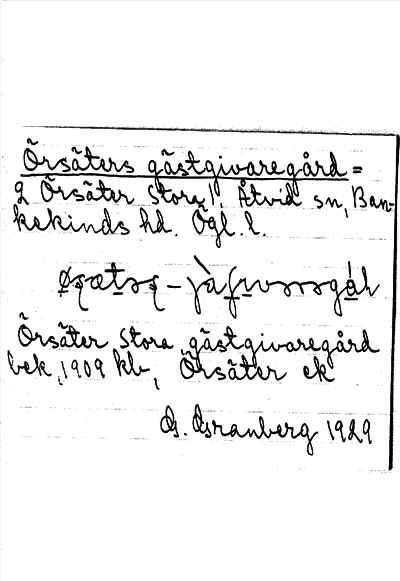 Örsäters gästgivaregård =
2 Örsäter Stora! Åtvid sn, Ban-
kekinds hd. Ögl. l.
Örsäter Stora gästgivaregård
bek, 1909 kb, Örsäter ek
Granberg 1929